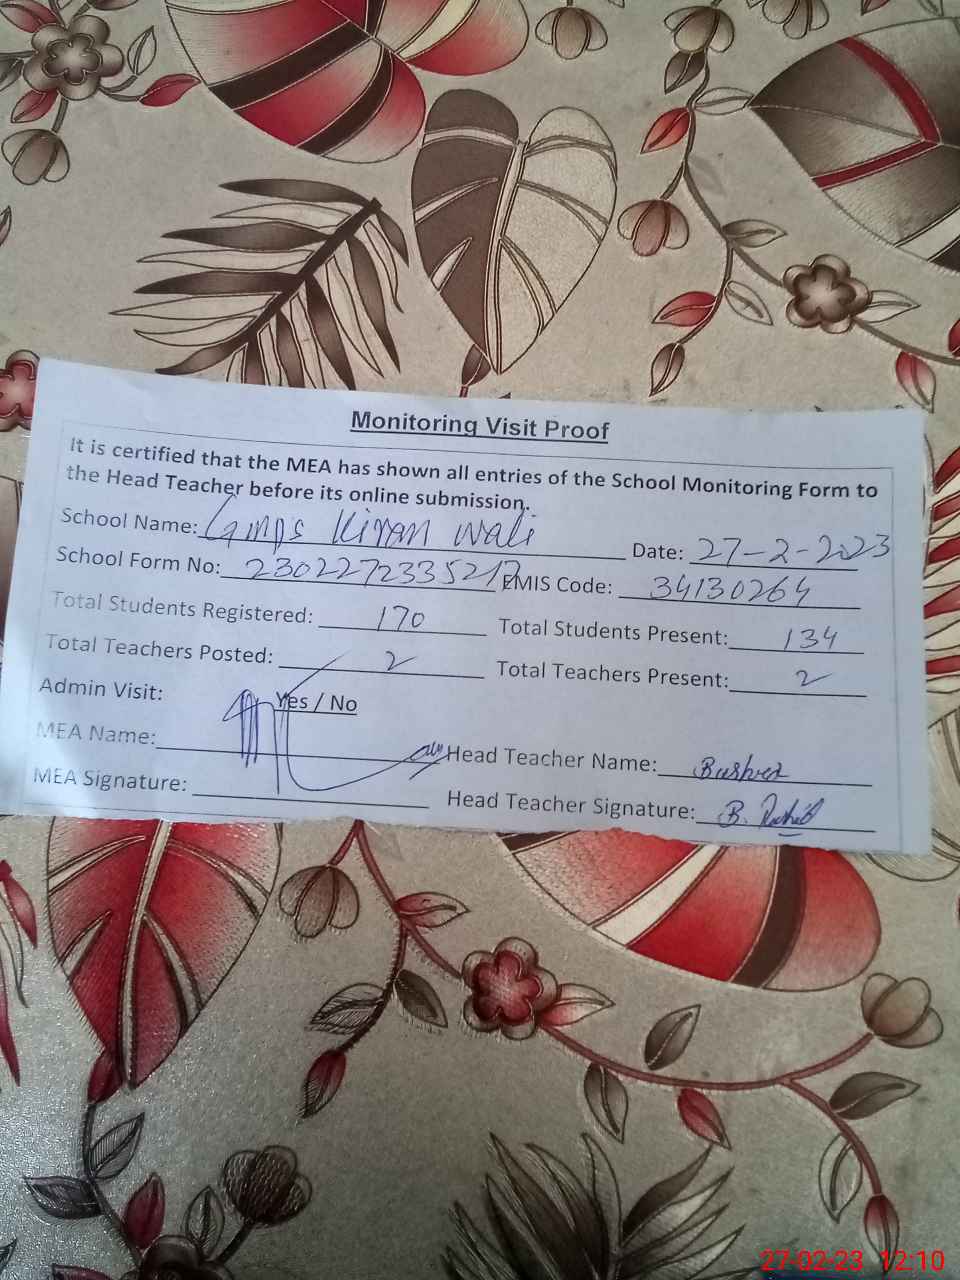 Monitoring Visit Proof
It is certified that the MEA has shown all entries of the School Monitoring Form to
the Head Teacher before its online submission.
School Name: Gmps Kiran Wali Date: 27-2-2023
School Form No: 2302272335217 EMIS Code: 34130264
Total Students Registered: 170 Total Students Present: 134
Total Teachers Posted: 2 Total Teachers Present: 2
Admin Visit: Yes / No
MEA Name: Head Teacher Name: Bushra
MEA Signature: Head Teacher Signature: B.
27-02-23 12:10